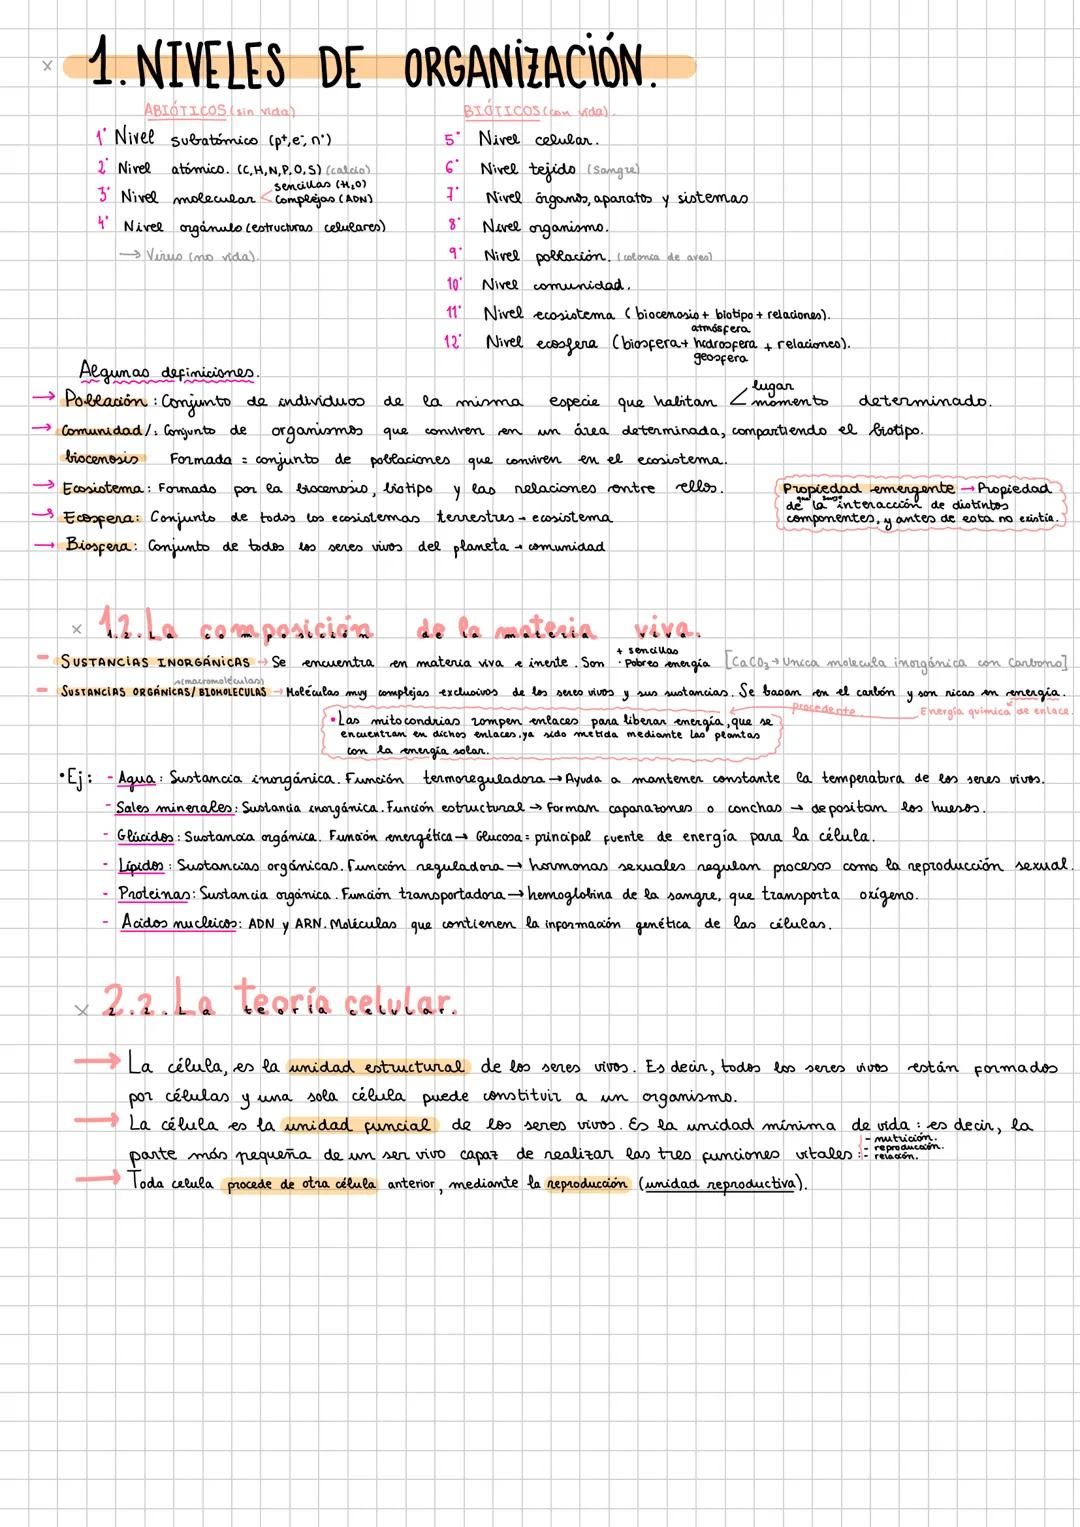 1. NIVELES DE ORGANIZACIÓN.
ABIÓTICOS (sin vida)
1º Nivel subatómico (p⁺, e⁻, nº)
2º Nivel atómico. (C, H, N, P, O, S) (calcio)
3º Nivel molecular < sencillas (H₂O)
complejas (ADN)
4º Nivel orgánulo (estructuras celulares)
→ Virus (no vida).
BIÓTICOS (con vida).
5º Nivel celular.
6º Nivel tejido (Sangre)
7º Nivel órganos, aparatos y sistemas
8º Nivel organismo.
9º Nivel población. (colonia de aves)
10º Nivel comunidad.
11º Nivel ecosistema (biocenosis + biotipo + relaciones).
atmósfera
12º Nivel ecosfera (biosfera + hidrosfera + relaciones).
geosfera
Algunas definiciones.
→ Población: Conjunto de individuos de la misma especie que habitan < lugar
momento determinado.
→ Comunidad/: Conjunto de organismos que conviven en un área determinada, compartiendo el biotipo.
biocenosis Formada = conjunto de poblaciones que conviven en el ecosistema.
→ Ecosistema: Formado por la biocenosis, biotipo y las relaciones entre ellos.
→ Ecosfera: Conjunto de todos los ecosistemas terrestres → ecosistema
→ Biosfera: Conjunto de todos los seres vivos del planeta → comunidad
Propiedad emergente → Propiedad
que surge
de la interacción de distintos
componentes, y antes de esta no existía.
1.2. La composición de la materia viva.
- SUSTANCIAS INORGÁNICAS → Se encuentra en materia viva e inerte. Son + sencillas
· Pobres energía [CaCO₃ → Única molécula inorgánica con Carbono]
(macromoléculas)
- SUSTANCIAS ORGÁNICAS/ BIOMOLECULAS → Moléculas muy complejas exclusivos de los seres vivos y sus sustancias. Se basan en el carbón y son ricas en energía.
procedente Energía química de enlace.
• Las mitocondrias rompen enlaces para liberar energía, que se
encuentran en dichos enlaces, ya sido metida mediante las plantas
con la energía solar.
• Ej: - Agua: Sustancia inorgánica. Función termoreguladora → Ayuda a mantener constante la temperatura de los seres vivos.
- Sales minerales: Sustancia inorgánica. Función estructural → Forman caparazones o conchas → depositan los huesos.
- Glúcidos: Sustancia orgánica. Función energética → Glucosa = principal fuente de energía para la célula.
- Lípidos: Sustancias orgánicas. Función reguladora → hormonas sexuales regulan procesos como la reproducción sexual.
- Proteinas: Sustancia orgánica. Función transportadora → hemoglobina de la sangre, que transporta oxígeno.
- Acidos nucleicos: ADN y ARN. Moléculas que contienen la información genética de las células.
2.2. La teoría celular.
→ La célula, es la unidad estructural de los seres vivos. Es decir, todos los seres vivos están formados
por células y una sola célula puede constituir a un organismo.
→ La célula es la unidad funcial de los seres vivos. Es la unidad mínima de vida: es decir, la
parte más pequeña de un ser vivo capaz de realizar las tres funciones vitales: - nutrición.
- reproducción.
- relación.
→ Toda celula procede de otra célula anterior, mediante la reproducción (unidad reproductiva).